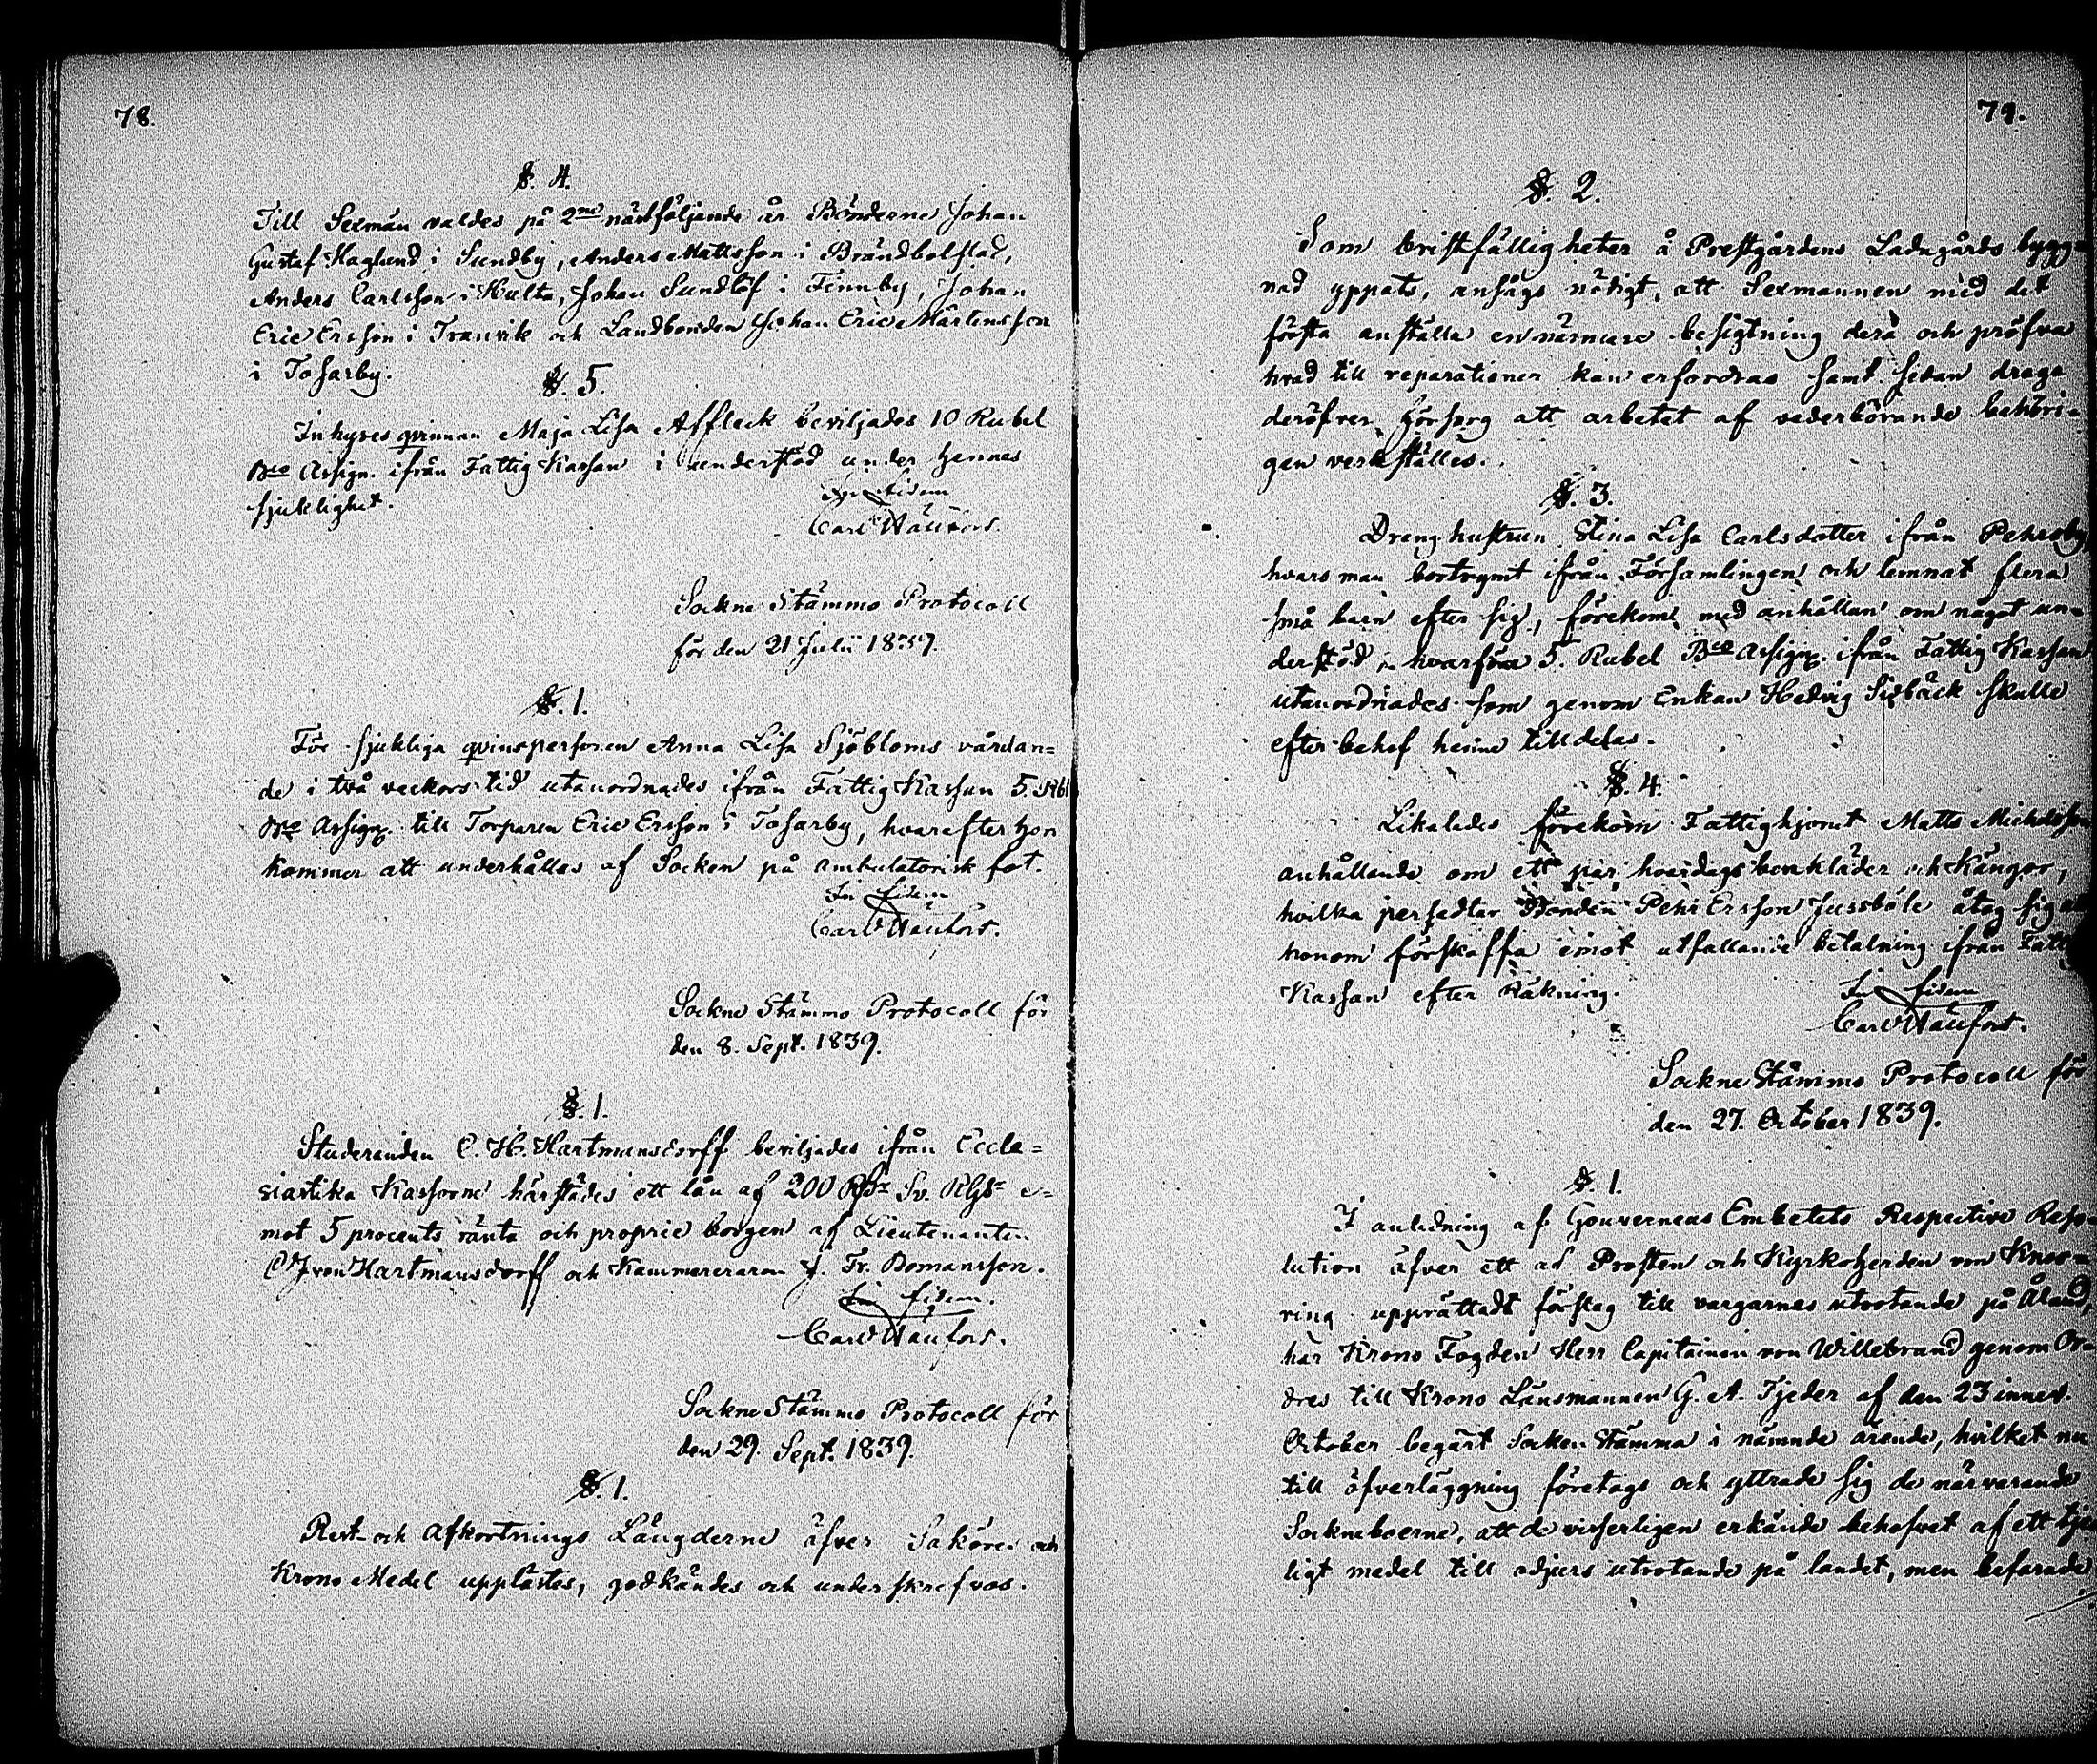 78.
§. 4.
Till Sexmän valdes på 2ne nästföljande år Bönderne Johan
Gustaf Haglund i Sundby, Anders Mattsson i Brändbolstad,
Anders Carlsson i Hulta, Johan Sundlöf i Finnby, Johan
Eric Ersson i Tranvik och Landbonden Johan Eric Mårtensson
i Tosarby.
§. 5.
Inhyses qvinnan Maja Lisa Affleck beviljades 10 Rubel
Bco Assign. ifrån Fattig Kassan i understöd under hennes
sjuklighet.
In fidem
Carl Waufors.
Sockne Stämmo Protocoll
för den 21 Julii 1839.
§. 1.
För sjukliga qvinspersonen Anna Lisa Sjöbloms vårdan=
de i två veckors tid utanordnades ifrån Fattig Kassan 5. Rbl
Bco Assign. till Torparen Eric Ersson i Tosarby, hvarefter hon
kommer att underhållas af Socken på ambulatorisk fot.
In fidem
Carl Waufors.
Sockne Stämmo Protocoll för
den 8. Sept. 1839.
§. 1.
Studeranden C. H. Hartmansdorff beviljades ifrån Eccle=
siastika Kassorne härstädes ett lån af 200 Rdr Sv. Rgs e=
mot 5 procents ränta och proprie borgen af Lieutenanten
C J von Hartmansdorff och Kammereraren J. Fr. Bomansson.
In fidem.
Carl Waufors.
Sockne Stämmo Protocoll för
den 29. Sept. 1839.
§. 1.
Rest- och Afkortnings Längderne öfver Saköres och
Krono Medel upplästes, godkändes och underskrefvos.
79.
§. 2.
Som bristfälligheter å Prestgårdens Ladugårds bygg=
nad yppats, ansågs nödigt, att Sexmannen med det
första anställa en närmare besigtning derå och pröfva
hvad till reparationer kan erfordras samt sedan draga
deröfver försorg att arbetet af vederbörande behöri=
gen verkställes.
§. 3.
Dreng hustrun Stina Lisa Carlsdotter ifrån Pehrsby,
hvars man bortrymt ifrån Församlingen och lemnat flera
små barn efter sig, förekom med anhållan om något un=
derstöd, hvarföre 5. Rubel Bco Assign. ifrån Fattig Kassan
utanordnades som genom Enkan Hedvig Sjöbäck skulle
efter behof henne tilldelas.
§. 4.
Likaledes förekom Fattighjonet Matts Michelsson
anhållande om ett par hvardags benkläder och Kängor,
hvilka persedlar Bonden Pehr Ersson Jussböle åtog sig
honom förskaffa emot utfallande betalning ifrån Fattig
Kassan efter Räkning.
In fidem
Carl Waufors.
Sockne Stämmo Protocoll för
den 27. October 1839.
§. 1.
I anledning af Gouverneurs Embetets Respective Reso=
lution öfver ett af Prosten och Kyrkoherden von Knor=
ring upprättadt förslag till vargarnes utrotande på Åland,
har Krono Fogden Herr Capitainen von Willebrand genom Or=
dres till Krono Länsmannen G. A. Tjeder af den 23 innev.
October begärt Socken Stämma i nämnde ärende, hvilket nu
till öfverläggning företogs och yttrade sig de närvarande
Sockneboerne, att de visserligen erkände behofvet af ett tjen=
ligt medel till odjurs utrotande på landet, men befarade